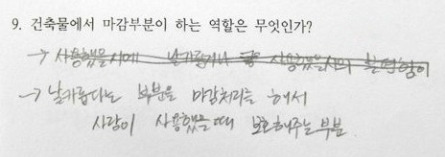 9. 건축물에서 마감부분이 하는 역할은 무엇인가?
→ 사용했을시에 날카롭거나 사용했을시의 불편함이
→ 날카롭다는 부분을 마감처리를 해서
사람이 사용했을때 보호해주는 부분